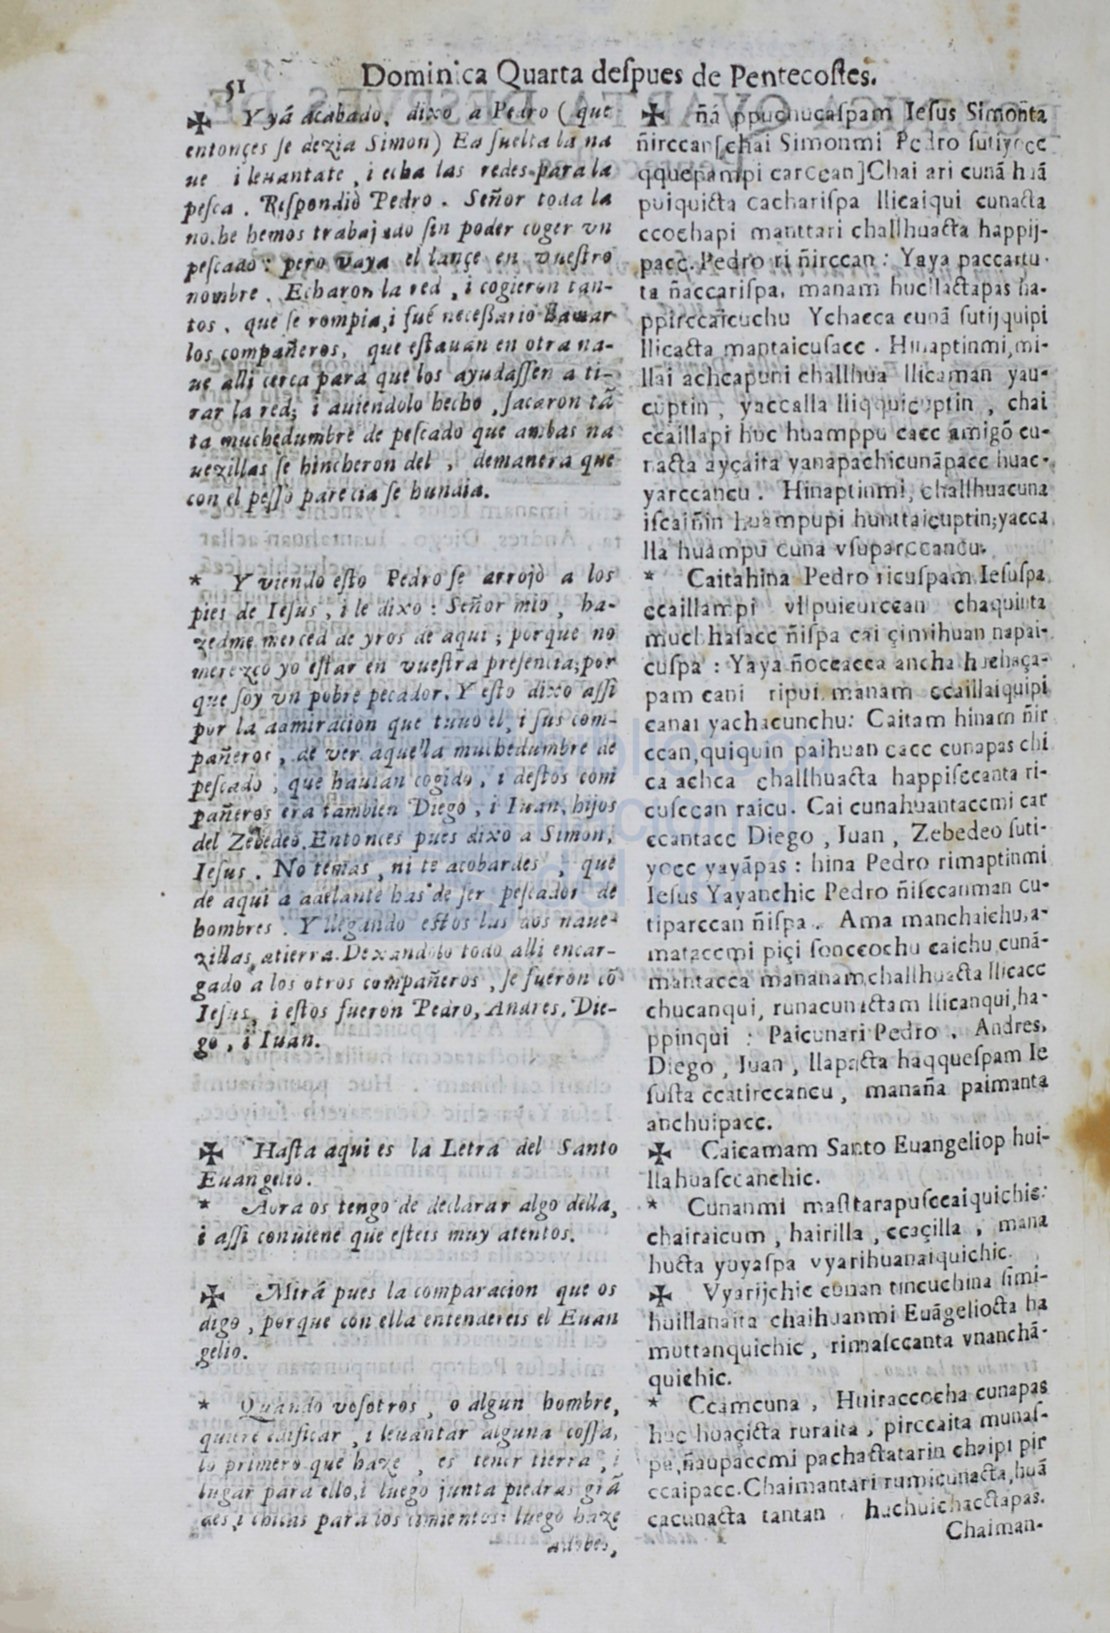 51
Dominica Quarta despues de Pentecostes.
✠ Y yá acabado, dixo a Pedro (que
entonçes se dezia Simon) Ea suelta la na
ue i leuantate, i echa las redes para la
pesca. Respondiò Pedro. Señor toda la
noche hemos trabajado sin poder coger vn
pescado: pero vaya el lançe en vuestro
nombre. Echaron la red, i cogieron tan-
tos, que se rompia, i fué necessario llamar
los compañeros, que estauan en otra na-
ue alli cerca para que los ayudassen a ti-
rar la red; i auiendolo hecho, sacaron tã
ta muchedumbre de pescado que ambas na
uezillas se hincheron del, demanera que
con el pesso parecia se hundia.
* Y viendo esto Pedro se arrojò a los
pies de Iesus, i le dixo: Señor mio, ha-
zedme merced de yros de aqui; porque no
merezco yo estar en vuestra presencia; por
que soy vn pobre pecador. Y esto dixo assi
por la admiracion que tuuo el, i sus com-
pañeros, de ver aquella muchedumbre de
pescado, que hauian cogido, i destos com
pañeros era tambien Diego, i Iuan, hijos
del Zebedeo. Entonces pues dixo a Simon,
Iesus. No temas, ni te acobardes, que
de aqui a adelante has de ser pescador de
hombres. Y llegando estos las dos naue-
zillas atierra. Dexandolo todo alli encar-
gado a los otros compañeros, se fueron cõ
Iesus, i estos fueron Pedro, Andres, Die-
go, i Iuan.
✠ Hasta aqui es la Letra del Santo
Euangelio.
* Aora os tengo de declarar algo della,
i assi conuiene que esteis muy atentos.
✠ Mirá pues la comparacion que os
digo, porque con ella entendereis el Euan
gelio.
* Quando vosotros, o algun hombre,
quiere edificar, i leuantar alguna cossa,
lo primero que haze, es tener tierra, i
lugar para ello, i luego junta piedras grã
des, i chicas para los cimientos: luego haze
adobes,
✠ ñá ppuchucaspam Iesus Simonta
ñirccan [chai Simonmi Pedro sutiyocc
qquepampi carccan] Chai ari cunã huã
puiquicta cacharispa llicaiqui cunacta
ccochapi manttari challhuacta happij-
pacc. Pedro ri ñirccan: Yaya paccartu-
ta ñaccarispa, manam huellactapas ha-
ppirccaicuchu Ychacca cunã sutijquipi
llicacta mantaicusacc. Hinaptinmi, mi-
llai achcapuni challhua llicaman yau-
cuptin, yaccalla lliqquicuptin, chai
ccaillapi huc huamppu cacc amigõ cu-
nacta ayçaita yanapachicunãpacc huac-
yarccancu. Hinaptinmi, challhuacuna
iscaiñin huampupi hunttaicuptin; yacca
lla huampu cuna vsuparccancu.
* Caitahina Pedro ricuspam Iesuspa
ccaillampi vllpuicurccan chaquinta
muchhasacc ñispa cai çimihuan napai-
cuspa: Yaya ñoccacca ancha huchaça-
pam cani ripui manam ccaillaiquipi
canai yachacunchu: Caitam hinam ñir
ccan, quiquin paihuan cacc cunapas chi
ca achca challhuacta happisccanta ri-
cusccan raicu. Cai cunahuantaccmi car
ccantacc Diego, Juan, Zebedeo suti-
yocc yayãpas: hina Pedro rimaptinmi
Iesus Yayanchic Pedro ñisccanman cu-
tiparccan ñispa. Ama manchaichu, a-
mataccmi piçi sonccochu caichu, cunã-
mantacca mananam challhuacta llicacc
chucanqui, runacunactam llicanqui, ha-
ppinqui: Paicunari Pedro, Andres,
Diego, Juan, llapacta haqquespam Ie
susta ccatirccancu, manaña paimanta
anchuipacc.
✠ Caicamam Santo Euangeliop hui-
llahuasccanchic.
* Cunanmi masttarapusccaiquichic:
chairaicum, hairilla, ccaçilla, mana
hucta yuyaspa vyarihuanaiquichic.
✠ Vyarijchic cunan tincuchina simi-
huillanaita chaihuanmi Euãgeliocta ha
muttanquichic, rimasccanta vnanchã-
quichic.
* Ccamcuna, Huiraccocha cunapas
huc huaçicta ruraita, pirccaita munas-
pa, ñaupaccmi pachactatarin chaipi pir
ccaipacc. Chaimantari rumicunacta, huã
cacunacta tantan huchuichacctapas.
Chaiman-